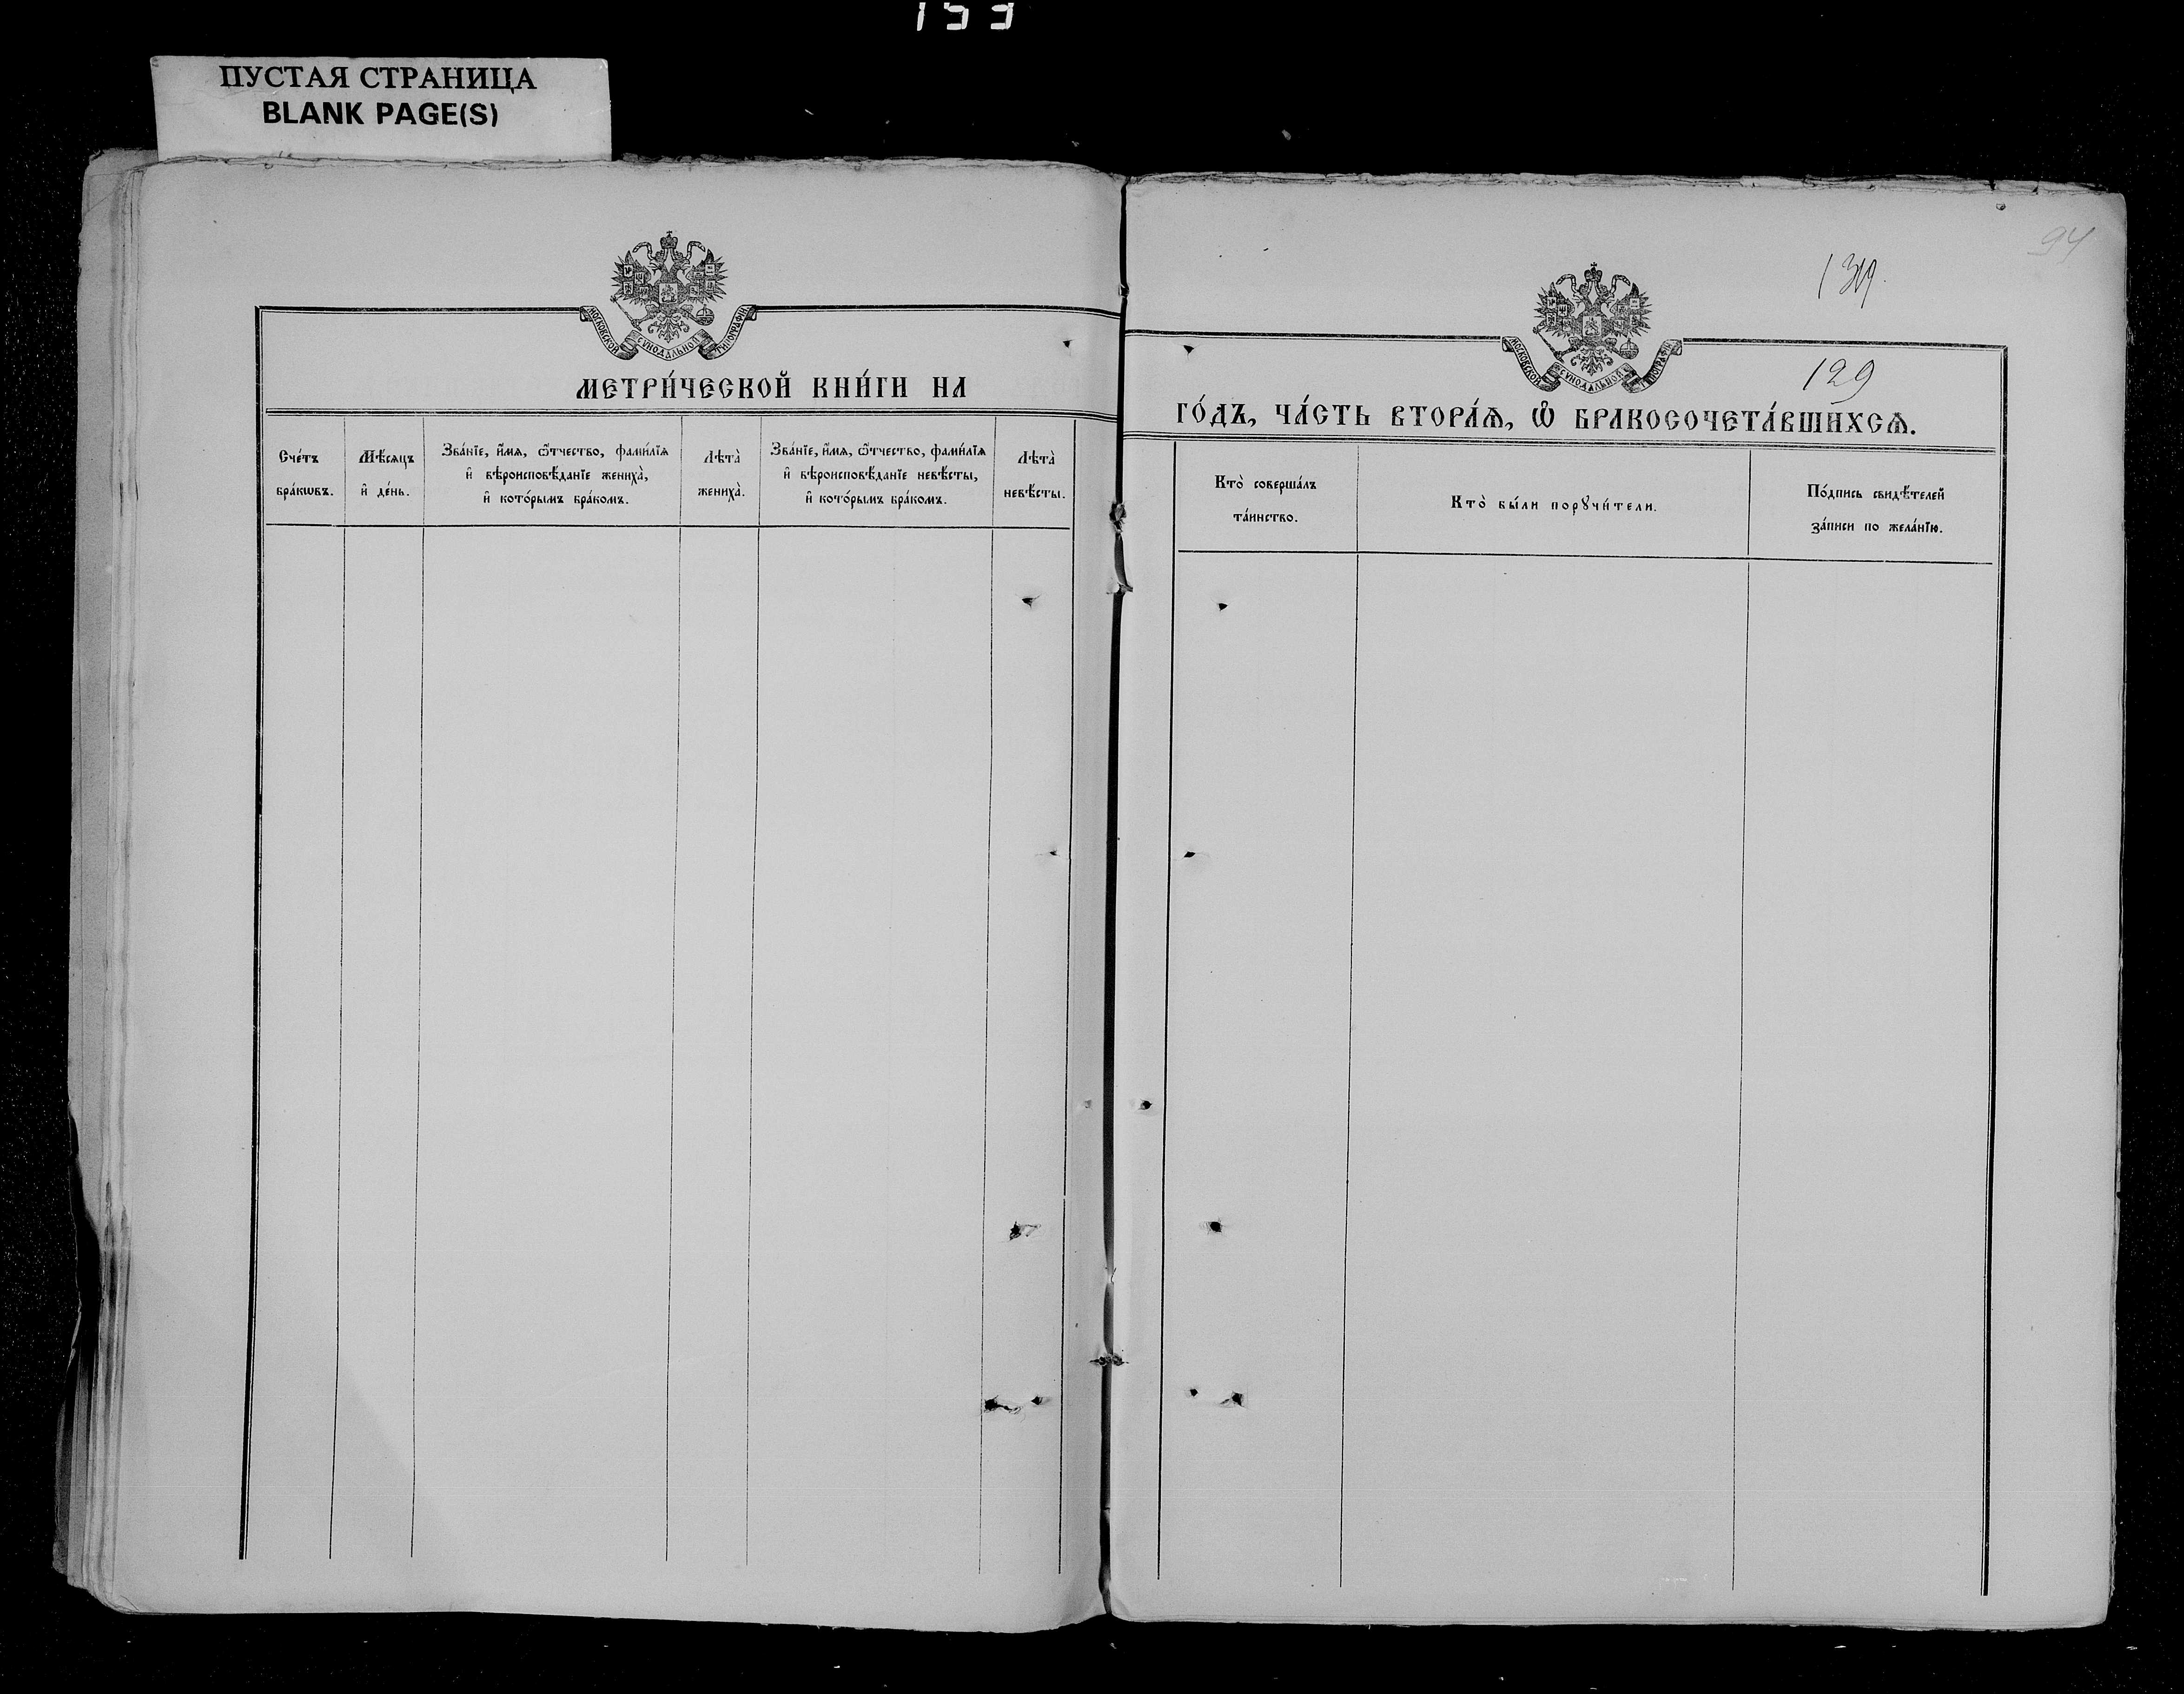 ПУСТАЯ СТРАНИЦА
BLANK PAGE(S)
МОСКОВСКОЙ СѴНОДАЛЬНОЙ ТИПОГРАФІИ
МЕТРИ́ЧЕСКОЙ КНИ́ГИ НА
Сче́тъ бра́кѡвъ.
Мѣ́сяцъ и҆ де́нь.
Зва́нїе, и҆́мя, ѻ҆́тчество, фами́лїя
и҆ вѣроисповѣ́данїе жениха̀,
и҆ кото́рымъ бра́комъ.
Лѣта̀ жениха̀.
Зва́нїе, и҆́мя, ѻ҆́тчество, фами́лїя
и҆ вѣроисповѣ́данїе невѣ́сты,
и҆ кото́рымъ бра́комъ.
Лѣта̀ невѣ́сты.
94
МОСКОВСКОЙ СѴНОДАЛЬНОЙ ТИПОГРАФІИ
129
ГО́ДЪ, ЧА́СТЬ ВТОРА́Ѧ, Ѽ БРАКОСОЧЕТА́ВШИХСѦ.
Кто̀ соверша́лъ
та́инство.
Кто̀ бы́ли порꙋчи́тели.
По́дпись свидѣ́телей
за́писи по жела́нїю.